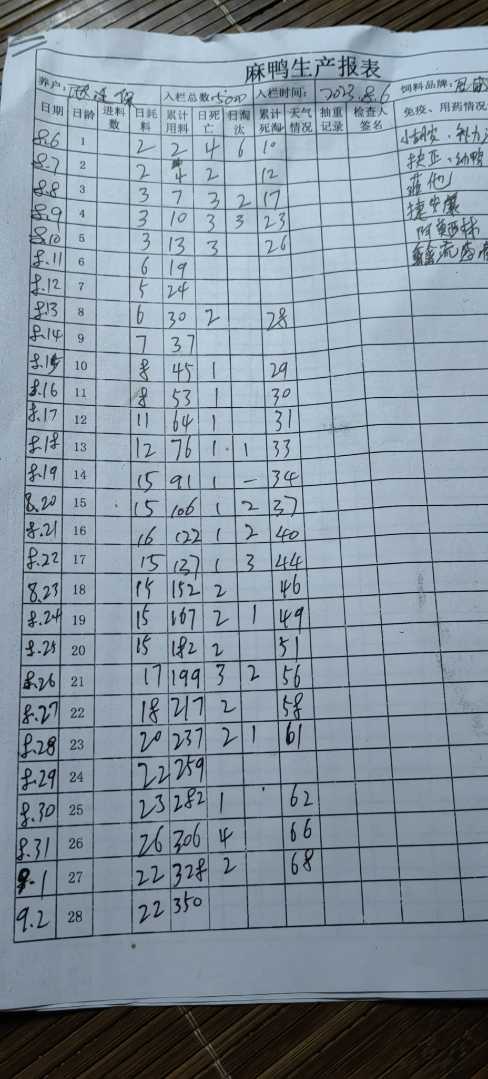 麻鸭生产报表
养户: 入栏总数: 5000 入栏时间: 2023.8.6 饲料品牌:
日期 日龄 进料数 日耗料 累计用料 日死亡 日淘汰 累计死淘 天气情况 抽重记录 检查人签名 免疫、用药情况
8.6 1 2 2 4 6 10
8.7 2 2 4 2 12
8.8 3 3 7 3 2 17
8.9 4 3 10 3 3 23
8.10 5 3 13 3 26 阿莫西林
8.11 6 6 19
8.12 7 5 24
8.13 8 6 30 2 28
8.14 9 7 37
8.15 10 8 45 1 29
8.16 11 8 53 1 30
8.17 12 11 64 1 31
8.18 13 12 76 1 1 33
8.19 14 15 91 1 - 34
8.20 15 15 106 1 2 37
8.21 16 16 122 1 2 40
8.22 17 15 137 1 3 44
8.23 18 15 152 2 46
8.24 19 15 167 2 1 49
8.25 20 15 182 2 51
8.26 21 17 199 3 2 56
8.27 22 18 217 2 58
8.28 23 20 237 2 1 61
8.29 24 22 259
8.30 25 23 282 1 62
8.31 26 26 306 4 66
9.1 27 22 328 2 68
9.2 28 22 350